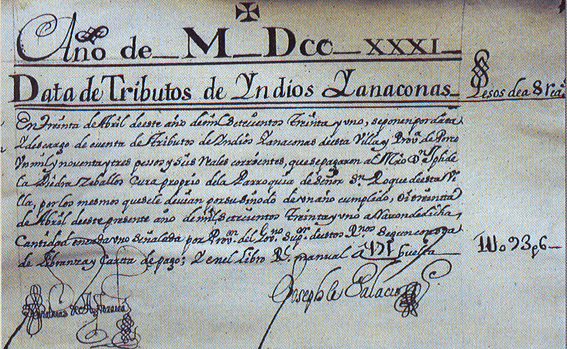 Año de M Dcc XXXI
Data de Tributos de Yndios Yanaconas Pesos de a 8 rs
En treinta de Abril deste año de mil Setecientos Treinta y uno, se ponen por data
y descargo de cuenta de tributos de Indios Yanaconas desta Villa y Prova de Porco
Un mil y noventa y tres pesos y seis Reales corrientes, que se pagaron al Mro Dn Joph de
la Piedra Zeballos Cura proprio dela Parroquia de Señor Sn Roque desta Vi
lla, por los mesmos que se le devian por su Sinodo de un año cumplido, a treinta
de Abril deste presente año de mil Setecientos Treinta y uno a razon de dicha
Cantidad en cada uno señalada por Provon del Govno Supor destos Rnos Segun consta
de libranza y Carta de pago; y en el libro Rl manual a 121 buelta 1U093p6
Joseph de Palacios